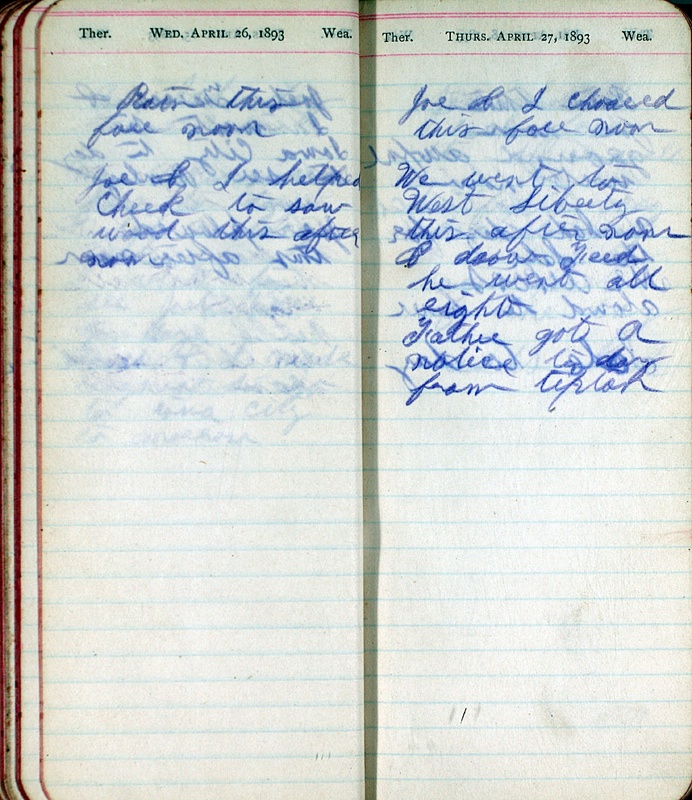 Ther. WED. APRIL 26, 1893 Wea.
Rain this
fore noon
Joe & I helped
Cheek to saw
wood this after
noon
Ther. THURS. APRIL 27, 1893 Wea.
Joe & I chored
this fore noon
We went to
West Liberty
this after noon
I drove Freed
he went all
right
Father got a
notice to day
from tipton